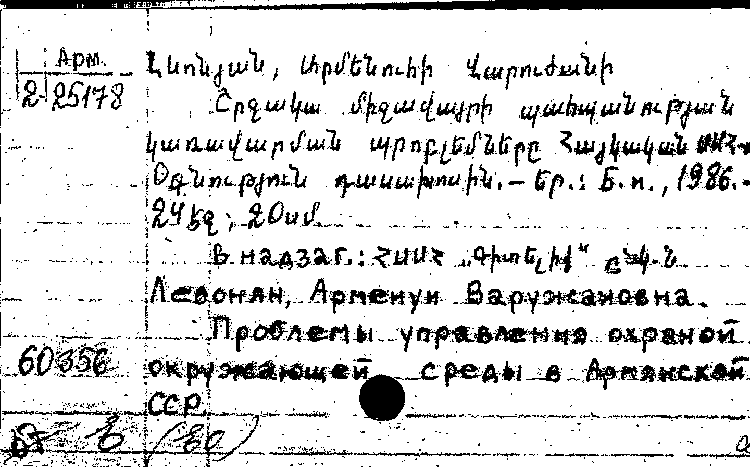 Арм.
2-25178
Լևոնյան, Արմենուհի Վարուժանի
Շրջակա միջավայրի պահպանության
կառավարման պրոբլեմները Հայկական ՍՍՀ-
Օգնություն դասախոսին. – Եր.: Б. и., 1986.-
24 էջ; 20սմ.
В надзаг.: ՀՍՍՀ „Գիտելիք" ընկ.-ն
Левонян, Арменуи Варужановна.
Проблемы управления охраной
60356 окружающей среды в Армянской
ССР.